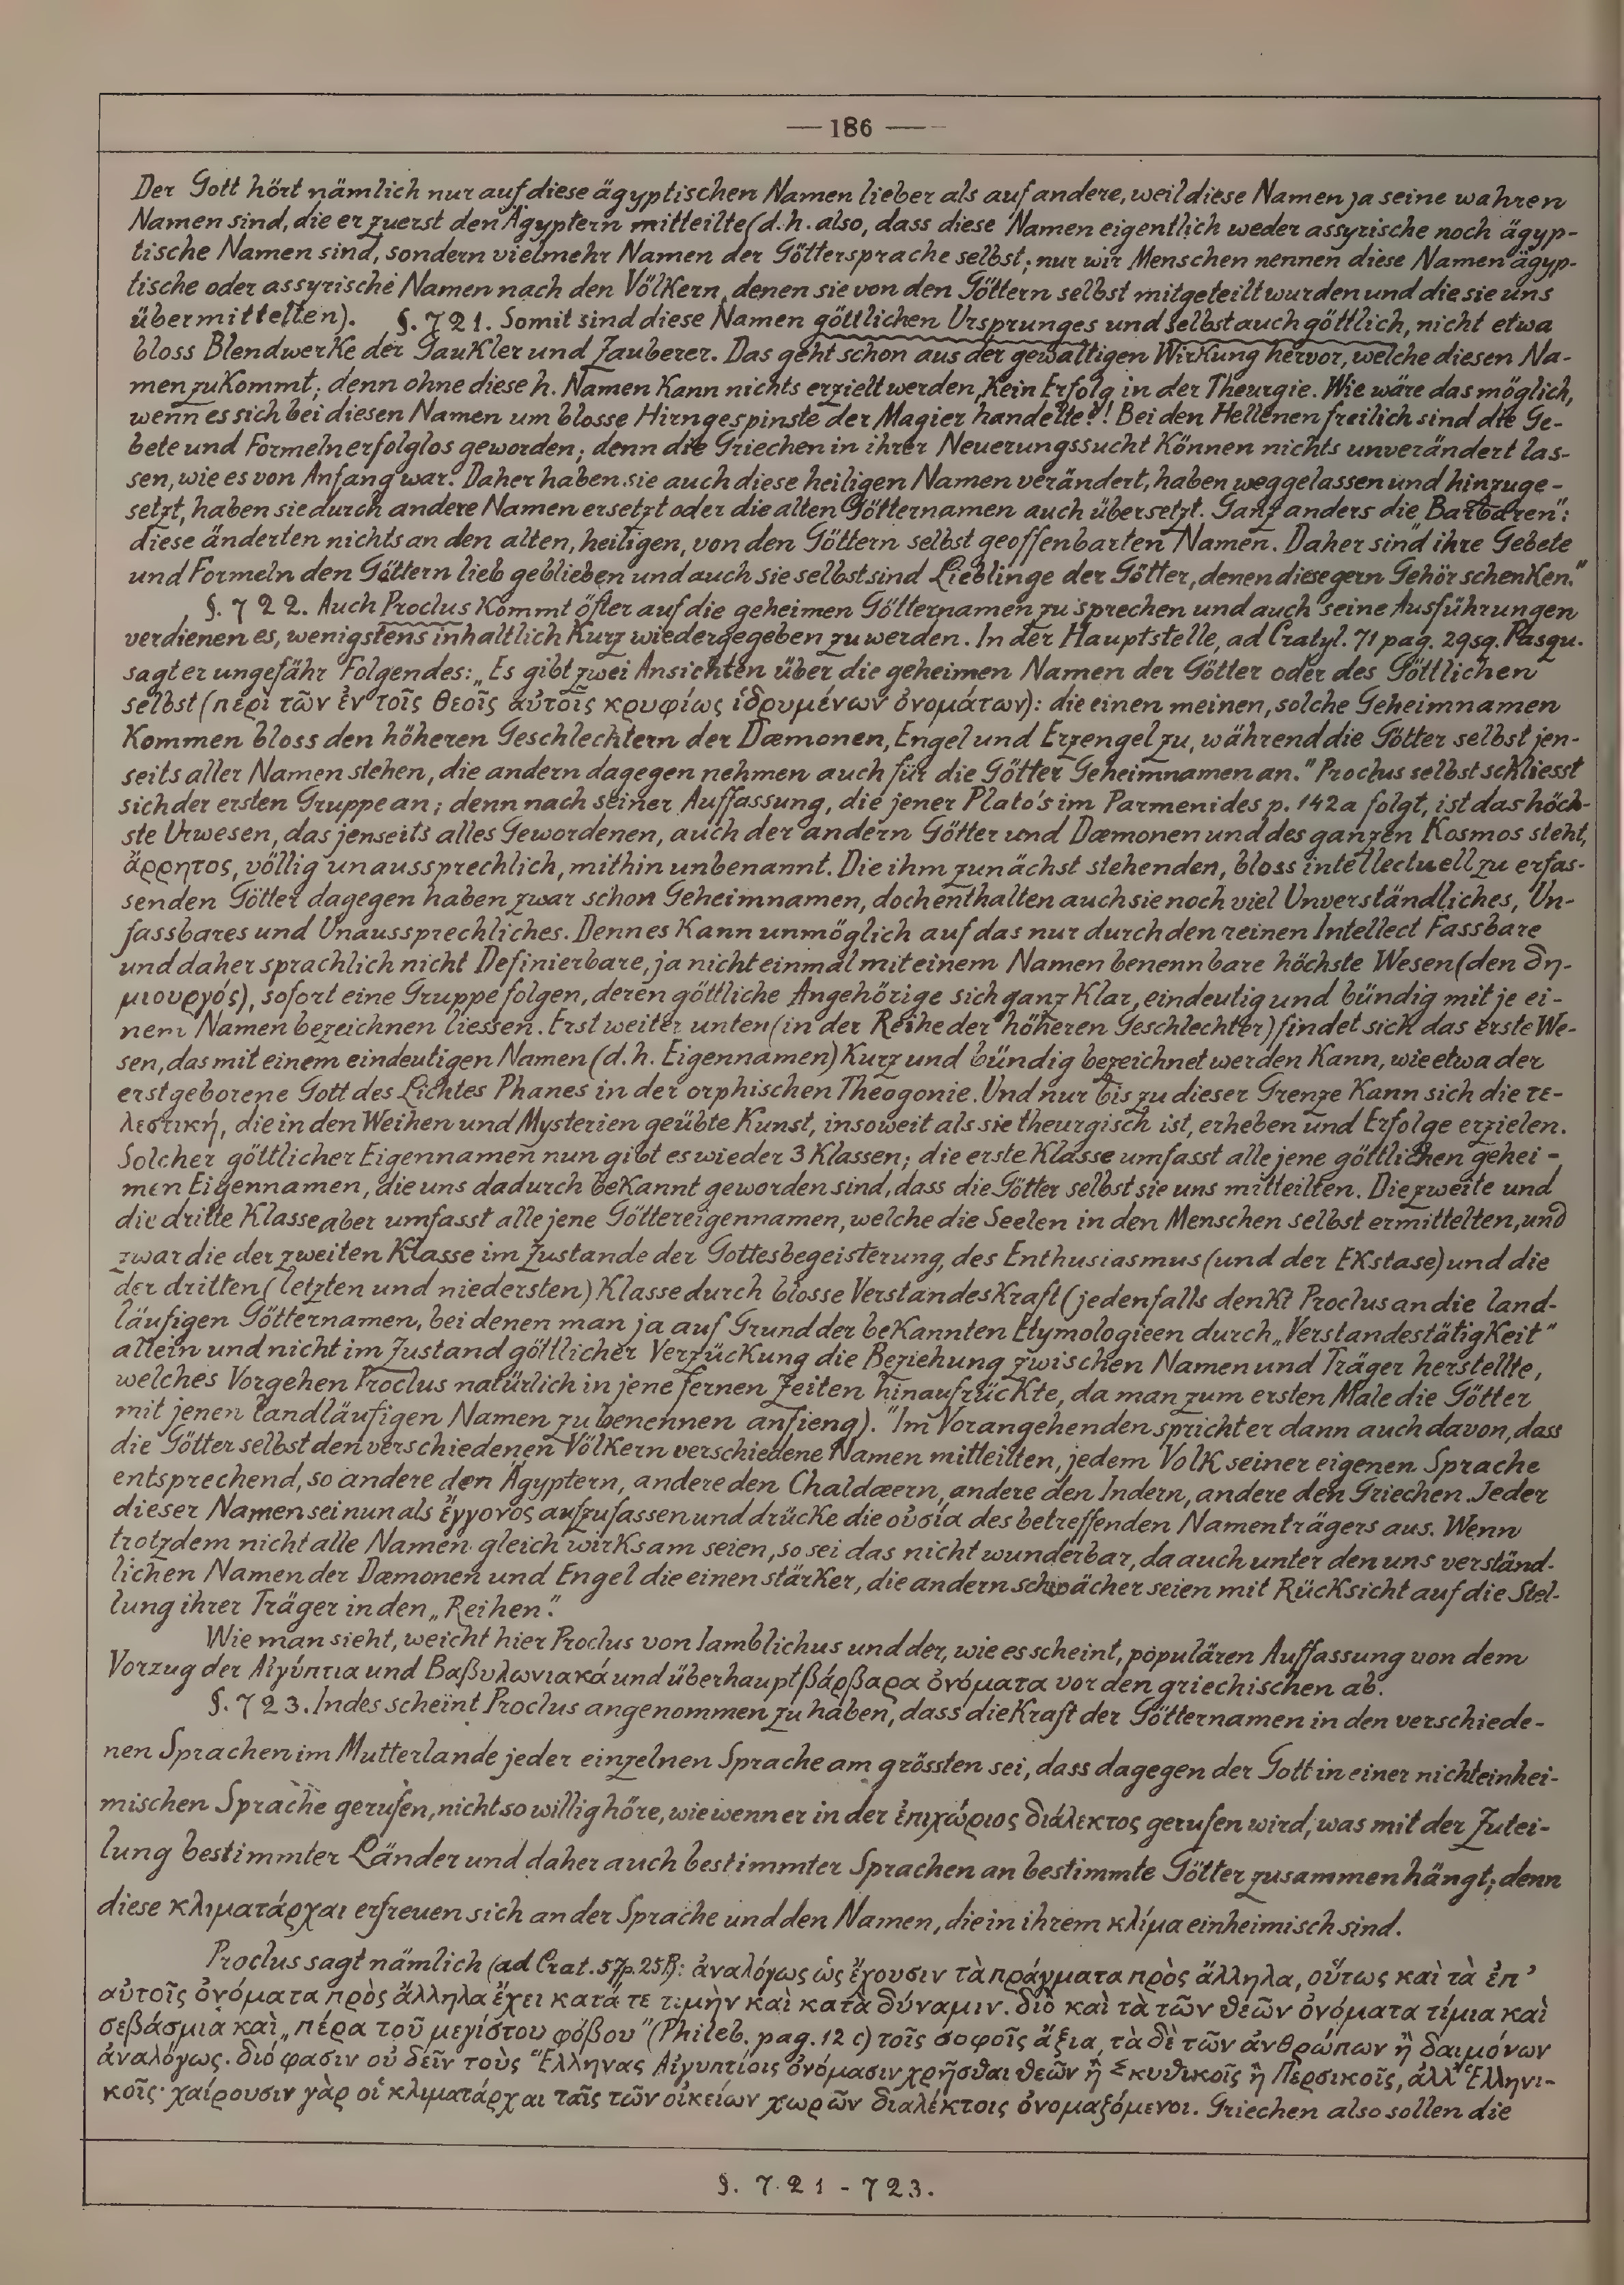 — 186 —
Der Gott hört nämlich nur auf diese ägyptischen Namen lieber als auf andere, weil diese Namen ja seine wahren
Namen sind, die er zuerst den Ägyptern mitteilte (d.h. also, dass diese Namen eigentlich weder assyrische noch ägyp-
tische Namen sind, sondern vielmehr Namen der Göttersprache selbst; nur wir Menschen nennen diese Namen ägyp-
tische oder assyrische Namen nach den Völkern, denen sie von den Göttern selbst mitgeteilt wurden und die sie uns
übermittelten). §. 721. Somit sind diese Namen göttlichen Ursprunges und selbst auch göttlich, nicht etwa
bloss Blendwerke der Gaukler und Zauberer. Das geht schon aus der gewaltigen Wirkung hervor, welche diesen Na-
men zukommt; denn ohne diese h. Namen kann nichts erzielt werden, kein Erfolg in der Theurgie. Wie wäre das möglich,
wenn es sich bei diesen Namen um blosse Hirngespinste der Magier handelte?! Bei den Hellenen freilich sind die Ge-
bete und Formeln erfolglos geworden; denn die Griechen in ihrer Neuerungssucht können nichts unverändert las-
sen, wie es von Anfang war. Daher haben sie auch diese heiligen Namen verändert, haben weggelassen und hinzuge-
setzt, haben sie durch andere Namen ersetzt oder die alten Götternamen auch übersetzt. Ganz anders die „Barbaren":
diese änderten nichts an den alten, heiligen, von den Göttern selbst geoffenbarten Namen. Daher sind ihre Gebete
und Formeln den Göttern lieb geblieben und auch sie selbst sind Lieblinge der Götter, denen diese gern Gehör schenken."
§. 722. Auch Proclus kommt öfter auf die geheimen Götternamen zu sprechen und auch seine Ausführungen
verdienen es, wenigstens inhaltlich kurz wiedergegeben zu werden. In der Hauptstelle, ad Cratyl. 71 pag. 29sq. Pasqu.
sagt er ungefähr Folgendes: „Es gibt zwei Ansichten über die geheimen Namen der Götter oder des Göttlichen
selbst (περὶ τῶν ἐν τοῖς θεοῖς αὐτοῖς κρυφίως ἱδρυμένων ὀνομάτων): die einen meinen, solche Geheimnamen
kommen bloss den höheren Geschlechtern der Dæmonen, Engel und Erzengel zu, während die Götter selbst jen-
seits aller Namen stehen, die andern dagegen nehmen auch für die Götter Geheimnamen an." Proclus selbst schliesst
sich der ersten Gruppe an; denn nach seiner Auffassung, die jener Plato's im Parmenides p. 142a folgt, ist das höch-
ste Urwesen, das jenseits alles Gewordenen, auch der andern Götter und Dæmonen und des ganzen Kosmos steht,
ἄρρητος, völlig unaussprechlich, mithin unbenannt. Die ihm zunächst stehenden, bloss intellectuell zu erfas-
senden Götter dagegen haben zwar schon Geheimnamen, doch enthalten auch sie noch viel Unverständliches, Un-
fassbares und Unaussprechliches. Denn es kann unmöglich auf das nur durch den reinen Intellect Fassbare
und daher sprachlich nicht Definierbare, ja nicht einmal mit einem Namen benennbare höchste Wesen (den δη-
μιουργός), sofort eine Gruppe folgen, deren göttliche Angehörige sich ganz klar, eindeutig und bündig mit je ei-
nem Namen bezeichnen liessen. Erst weiter unten (in der Reihe der höheren Geschlechter) findet sich das erste We-
sen, das mit einem eindeutigen Namen (d.h. Eigennamen) kurz und bündig bezeichnet werden kann, wie etwa der
erstgeborene Gott des Lichtes Phanes in der orphischen Theogonie. Und nur bis zu dieser Grenze kann sich die τε-
λεστική, die in den Weihen und Mysterien geübte Kunst, insoweit als sie theurgisch ist, erheben und Erfolge erzielen.
Solcher göttlicher Eigennamen nun gibt es wieder 3 Klassen; die erste Klasse umfasst alle jene göttlichen gehei-
men Eigennamen, die uns dadurch bekannt geworden sind, dass die Götter selbst sie uns mitteilten. Die zweite und
die dritte Klasse aber umfasst alle jene Göttereigennamen, welche die Seelen in den Menschen selbst ermittelten, und
zwar die der zweiten Klasse im Zustande der Gottesbegeisterung, des Enthusiasmus (und der Ekstase) und die
der dritten (letzten und niedersten) Klasse durch blosse Verstandeskraft (jedenfalls denkt Proclus an die land-
läufigen Götternamen, bei denen man ja auf Grund der bekannten Etymologieen durch „Verstandestätigkeit"
allein und nicht im Zustand göttlicher Verzückung die Beziehung zwischen Namen und Träger herstellte,
welches Vorgehen Proclus natürlich in jene fernen Zeiten hinaufrückte, da man zum ersten Male die Götter
mit jenen landläufigen Namen zu benennen anfieng)." Im Vorangehenden spricht er dann auch davon, dass
die Götter selbst den verschiedenen Völkern verschiedene Namen mitteilten, jedem Volk seiner eigenen Sprache
entsprechend, so andere den Ägyptern, andere den Chaldæern, andere den Indern, andere den Griechen. Jeder
dieser Namen sei nun als ἔγγονος aufzufassen und drücke die οὐσία des betreffenden Namenträgers aus. Wenn
trotzdem nicht alle Namen gleich wirksam seien, so sei das nicht wunderbar, da auch unter den uns verständ-
lichen Namen der Dæmonen und Engel die einen stärker, die andern schwächer seien mit Rücksicht auf die Stel-
lung ihrer Träger in den „Reihen".
Wie man sieht, weicht hier Proclus von Iamblichus und der, wie es scheint, populären Auffassung von dem
Vorzug der Αἰγύπτια und Βαβυλωνιακά und überhaupt βάρβαρα ὀνόματα vor den griechischen ab.
§. 723. Indes scheint Proclus angenommen zu haben, dass die Kraft der Götternamen in den verschiede-
nen Sprachen im Mutterlande jeder einzelnen Sprache am grössten sei, dass dagegen der Gott in einer nichteinhei-
mischen Sprache gerufen, nicht so willig höre, wie wenn er in der ἐπιχώριος διάλεκτος gerufen wird, was mit der Zutei-
lung bestimmter Länder und daher auch bestimmter Sprachen an bestimmte Götter zusammenhängt; denn
diese κλιματάρχαι erfreuen sich an der Sprache und den Namen, die in ihrem κλίμα einheimisch sind.
Proclus sagt nämlich (ad Crat. 57p. 25P): ἀναλόγως ὡς ἔχουσιν τὰ πράγματα πρὸς ἄλληλα, οὕτως καὶ τὰ ἐπ'
αὐτοῖς ὀνόματα πρὸς ἄλληλα ἔχει κατά τε τιμὴν καὶ κατὰ δύναμιν. διὸ καὶ τὰ τῶν θεῶν ὀνόματα τίμια καὶ
σεβάσμια καὶ „πέρα τοῦ μεγίστου φόβου" (Phileb. pag. 12 c) τοῖς σοφοῖς ἄξια, τὰ δὲ τῶν ἀνθρώπων ἢ δαιμόνων
ἀναλόγως. διό φασιν οὐ δεῖν τοὺς Ἕλληνας Αἰγυπτίοις ὀνόμασιν χρῆσθαι θεῶν ἢ Σκυθικοῖς ἢ Περσικοῖς, ἀλλ' Ἑλληνι-
κοῖς· χαίρουσιν γὰρ οἱ κλιματάρχαι ταῖς τῶν οἰκείων χωρῶν διαλέκτοις ὀνομαζόμενοι. Griechen also sollen die
§. 721 - 723.